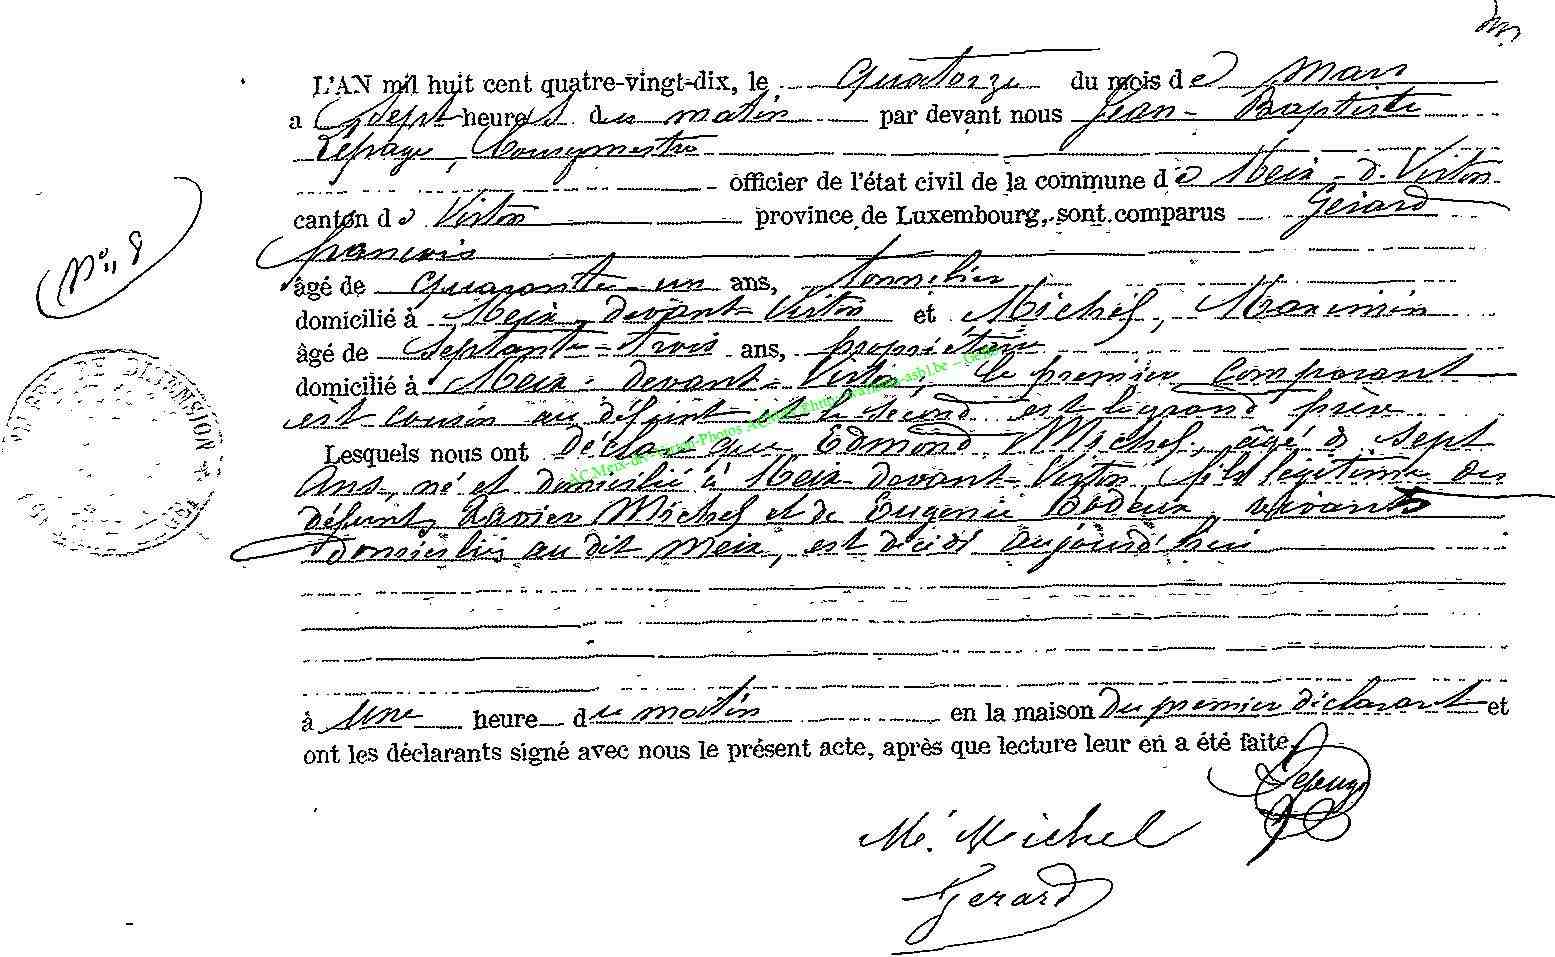 L'AN mil huit cent quatre-vingt-dix, le quatorze du mois de mars
a sept heures du matin par devant nous Jean-Baptiste
Lepage, Bourgmestre
officier de l'état civil de la commune de Meix-d. Virton
canton de Virton province de Luxembourg, sont comparus Gérard
françois
N° 8
âgé de quarante-un ans, tonnelier
domicilié à Meix-devant-Virton et Michel, Maximin
âgé de septante-trois ans, propriétaire
domicilié à Meix-devant-Virton, le premier comparant
est cousin au défunt et le second est le grand père
Lesquels nous ont déclaré que Edmond Michel, âgé de sept
Ans, né et domicilié à Meix-devant-Virton, fils légitime des
défunts Xavier Michel et de Eugénie Bodeux, vivants
domiciliés au dit Meix, est décédé aujourd'hui
à une heure du matin en la maison du premier déclarant et
ont les déclarants signé avec nous le présent acte, après que lecture leur en a été faite.
Lepage
Mé. Michel
Gerard